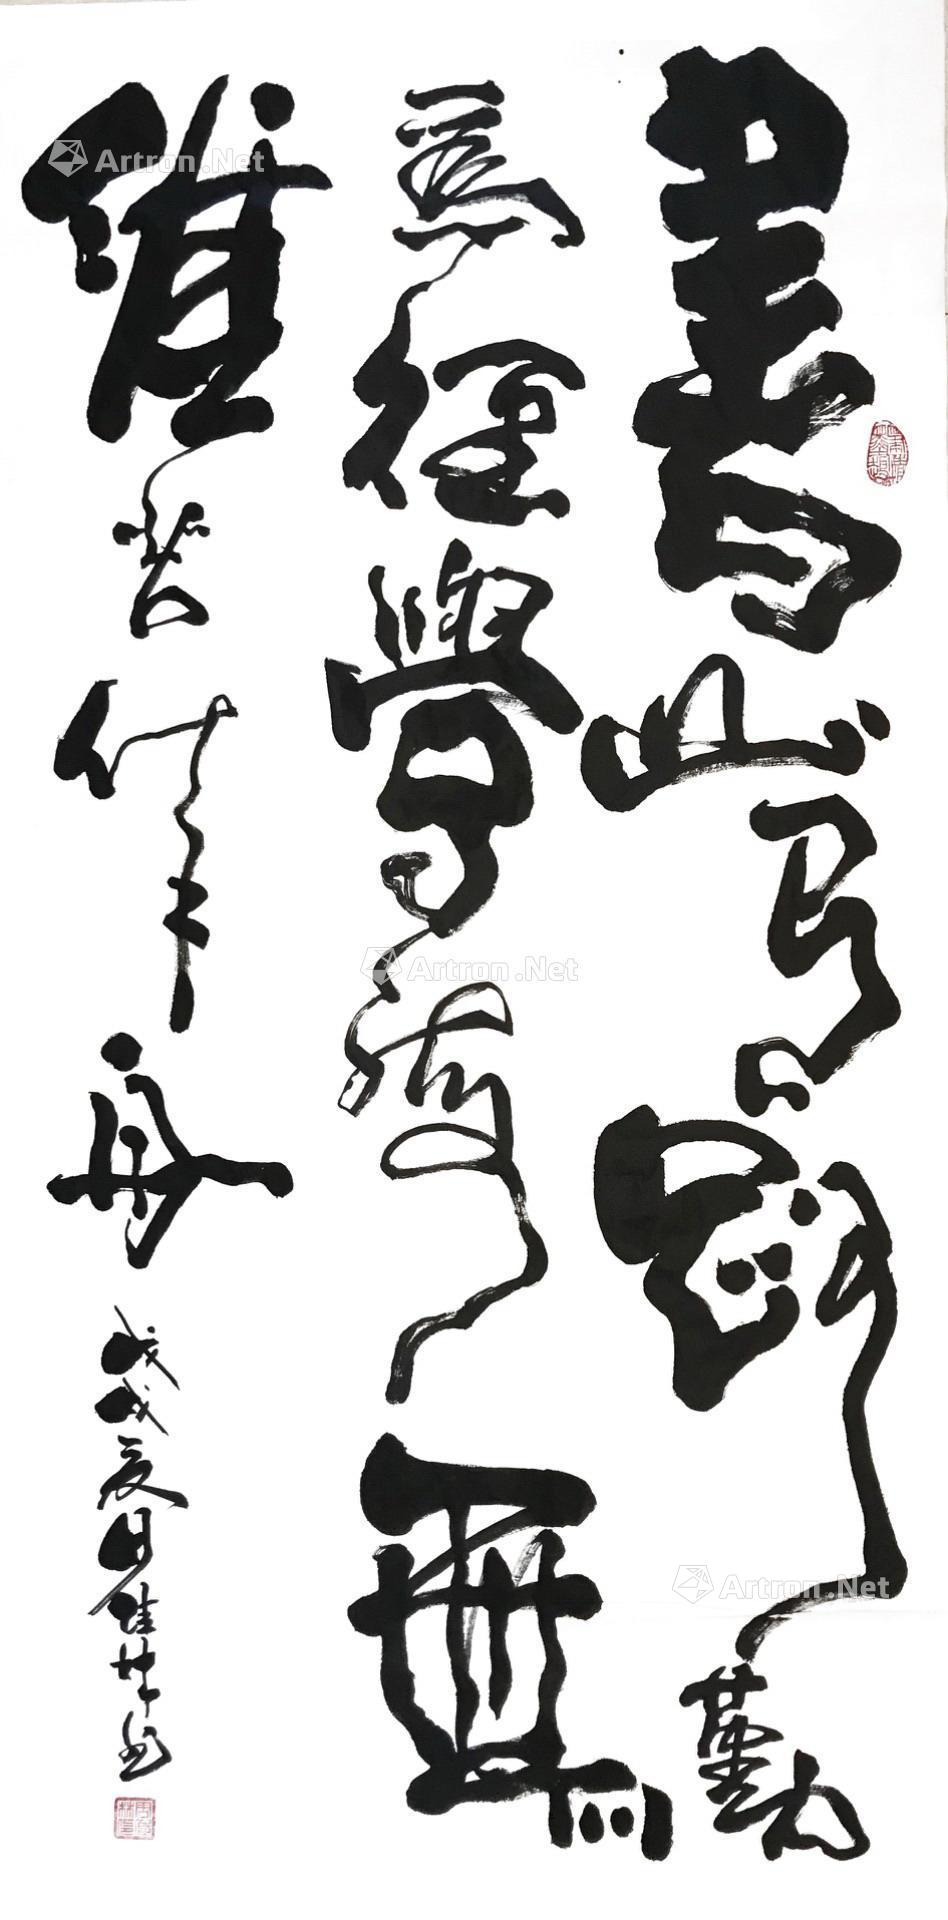 書山有路勤
為徑學海無
涯苦作舟
戊戌夏月佳
Artron.Net
Artron.Net
Artron.Net